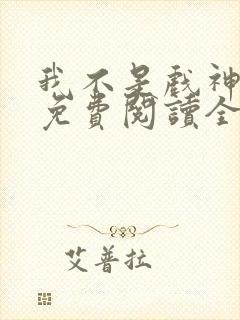 我不是戲神
免費閱讀全
艾普拉